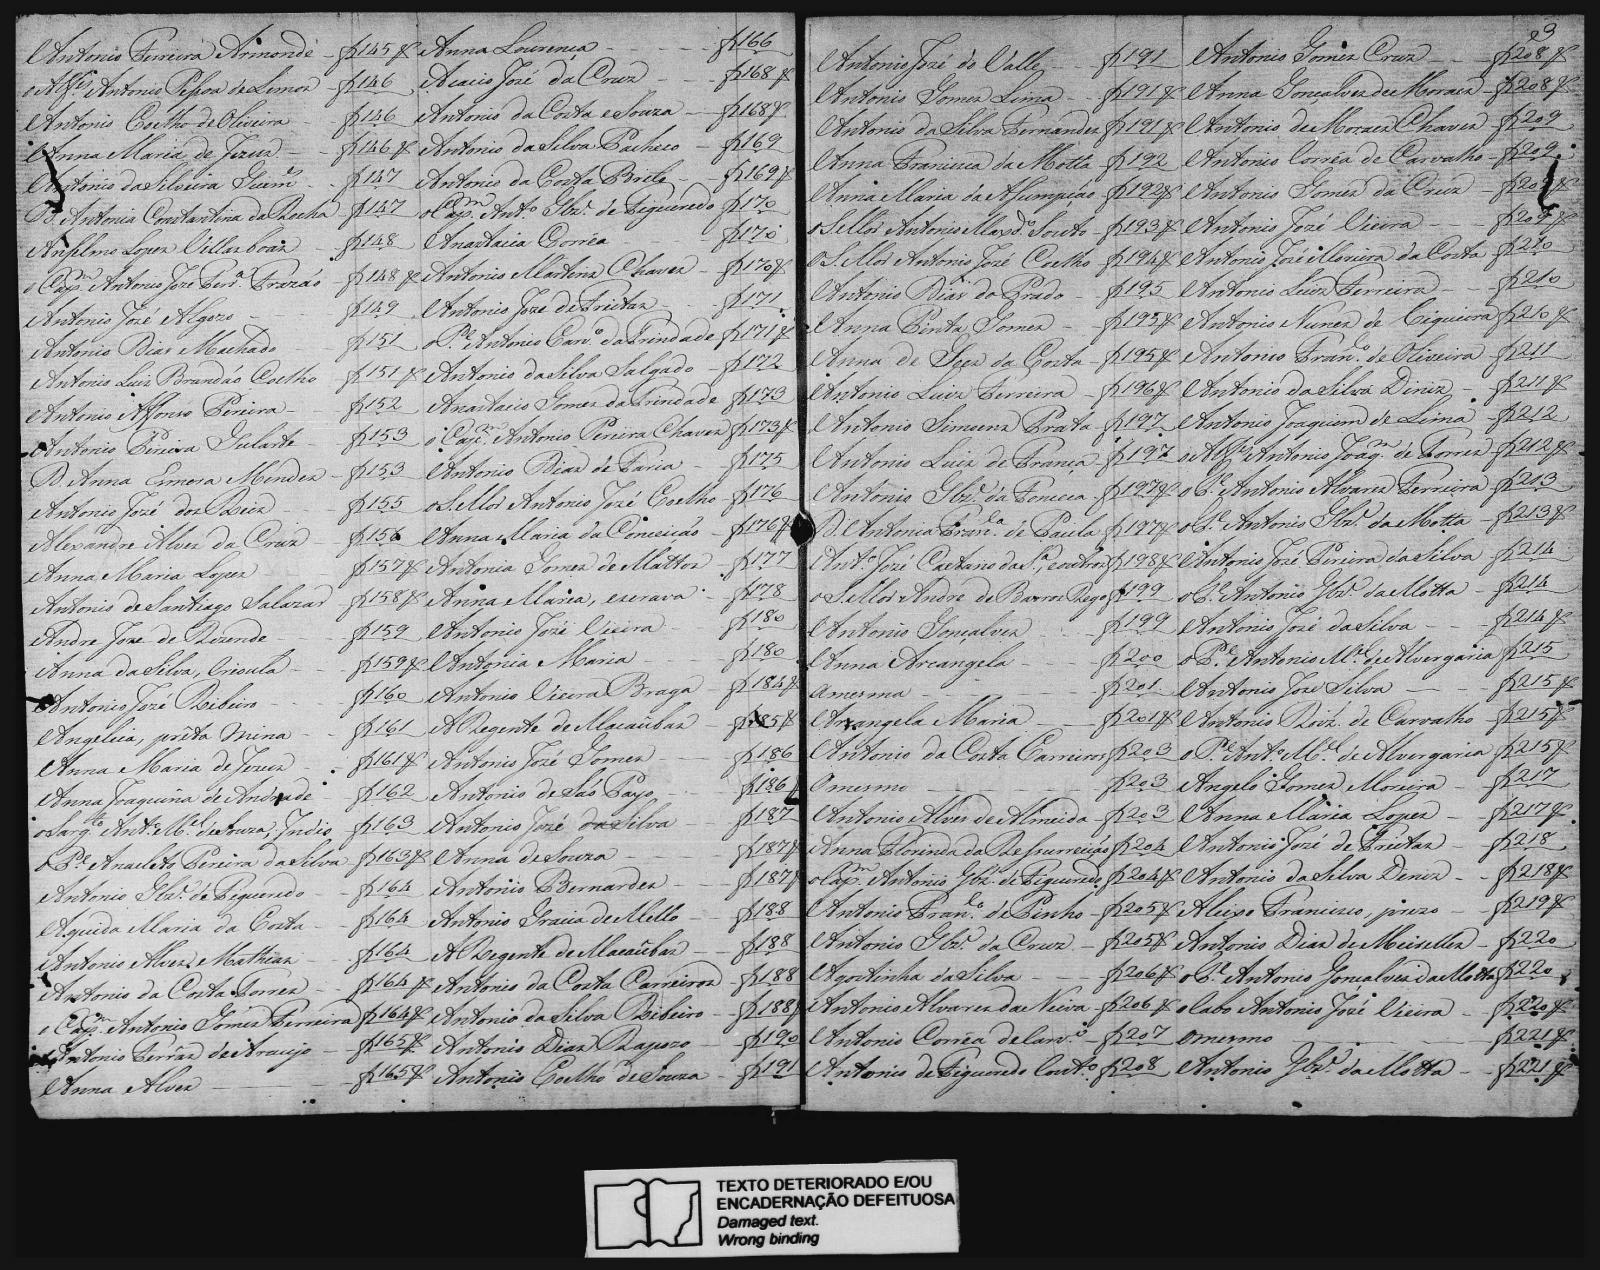 Antonio Ferreira Armonde - f145 v
o Alfs. Antonio Pessoa de Lemos - f146
Antonio Coelho de Oliveira - f146
Anna Maria de Jezus - f146 v
Antonio da Silveira Guimes. - f147
D. Antonia Constantina da Rocha f147
Anselmo Lopes Villas boas - f148
o Capm. Antonio José Ferra. Frazáo f148 v
Antonio José Algozo - f149
Antonio Dias Machado - f151
Antonio Luis Brandáo Coelho f151 v
Antonio Affonso Pereira - f152
Antonio Pereira Gularte - f153
D. Anna Mendes - f153
Antonio José dos Reis - f155
Alexandre Alves da Cruz - f156
Anna Maria Lopes - f157 v
Antonio de Santiago Salazar f158 v
Andre Joze de Rezende - f159
Anna da Silva, Crioula - f159 v
Antonio José Ribeiro - f160
Angelica, prêta mina - f161
Anna Maria de Jezus - f161 v
Anna Joaquina de Andrade - f162
o Sargto. Anto. Mel. de Souza, Indio f163
o Pe. Anacleto Pereira da Silva f163 v
Antonio Glz. de Figueredo - f164
Agueda Maria da Costa - f164
Antonio Alves Mathias - f164
Antonio da Costa Torres - f164 v
o Capm. Antonio Gomes Ferreira f164 v
Antonio Ferráz de Araujo - f165 v
Anna Alves - f165 v
Anna Lourença - f166
Acacio José da Cruz - f168 v
Antonio da Costa e Souza - f168 v
Antonio da Silva Pacheco - f169
Antonio da Costa Brito - f169 v
o Capm. Anto. Glz. de Figueredo f170
Anastacia Corrêa - f170
Antonio Martins Chaves - f170 v
Antonio Joze de Freitas - f171
o Pe. Antonio Caro. da Trindade f171 v
Antonio da Silva Salgado - f172
Anastacio Gomes da Trindade f173
o Capm. Antonio Pereira Chaves f173 v
Antonio Dias de Faria - f175
o S. Mor Antonio José Coelho f176
Anna Maria da Conceicáo - f176 v
Antonia Gomes de Mattos - f177
Anna Maria, escrava - f178
Antonio José Vieira - f180
Antonia Maria - f180
Antonio Vieira Braga - f184 v
A Regente de Macaúbas - f185 v
Antonio José Gomes - f186
Antonio de Sáo Payo - f186
Antonio José da Silva - f187
Anna de Souza - f187 v
Antonio Bernardes - f187 v
Antonio Gracia de Mello - f188
A Regente de Macaúbas - f188
Antonio da Costa Carreiros f188
Antonio da Silva Ribeiro - f188 v
Antonio Dias Raposo - f190
Antonio Coelho de Souza - f191
3
Antonio José do Valle - f191
Antonio Gomes Lima - f191 v
Antonio da Silva Fernandes f191 v
Anna Francisca da Motta f192
Anna Maria da Assumpcáo f192 v
o S. Mor Antonio Macdo. Souto - f193 v
o S. Mor Antonio José Coelho f194 v
Antonio Dias do Prado - f195
Anna Pinta Gomes - f195 v
Anna de da Costa - f195 v
Antonio Luis Ferreira - f196 v
Antonio Prata f197
Antonio Luis de França - f197
Antonio Glz. da Fonceca - f197 v
D. Antonia Franca. de Paula f197 v
Anto. José Caetano da Sa., e outros f198 v
o S. Mor Andre de Barros Rego f199
Antonio Gonçalves f199
Anna Arcangela - f200
Amesma f201
Arcangela Maria - f201 v
Antonio da Costa Carreiros f203
Omesmo f203
Antonio Alves de Almeida - f203
Anna Florinda da Ressurreicáo f204
o Capm. Antonio Glz. de Figueredo f204 v
Antonio Franco. de Pinho - f205 v
Antonio Glz. da Cruz - f205 v
Agostinha da Silva - f206 v
Antonio Alvares da Neiva f206 v
Antonio Corrêa de Caro. - f207
Antonio de Figueredo Couto. f208
Antonio Gomes Cruz - f208 v
Anna Gonçalves de Moraes - f208 v
Antonio de Moraes Chaves f209
Antonio Corrêa de Carvalho - f209
Antonio Gomes da Cruz - f209 v
Antonio José Vieira - f209 v
Antonio José Moreira da Costa f210
Antonio Luis Ferreira - f210
Antonio Nunes de Ciqueira f210 v
Antonio Franco. de Oliveira f211
Antonio da Silva Diniz - f211 v
Antonio Joaquim de Lima - f212
o Alfs. Antonio Joaqm. de Torres f212 v
o Pe. Antonio Alvares Ferreira f213
o Pe. Antonio Glz. da Motta f213 v
Antonio José Pereira da Silva f214
o Pe. Antonio Glz. da Motta - f214
Antonio José da Silva - f214 v
o Pe. Antonio Mel. de Alvergaria f215
Antonio Joze Silva - f215 v
Antonio Roiz. de Carvalho - f215 v
o Pe. Anto. Mel. de Alvergaria f215 v
Angelo Gomes Moreira - f217
Anna Maria Lopes - f217 v
Antonio José de Freitas - f218
Antonio da Silva Deniz - f218 v
Aleixo Francisco, prezo - f219 v
Antonio Dias de Meirelles - f220
o Pe. Antonio Gonçalves da Motta f220
o Cabo Antonio José Vieira - f220 v
Omesmo f221 v
Antonio Glz. da Motta - f221 v
TEXTO DETERIORADO E/OU
ENCADERNAÇÃO DEFEITUOSA
Damaged text.
Wrong binding